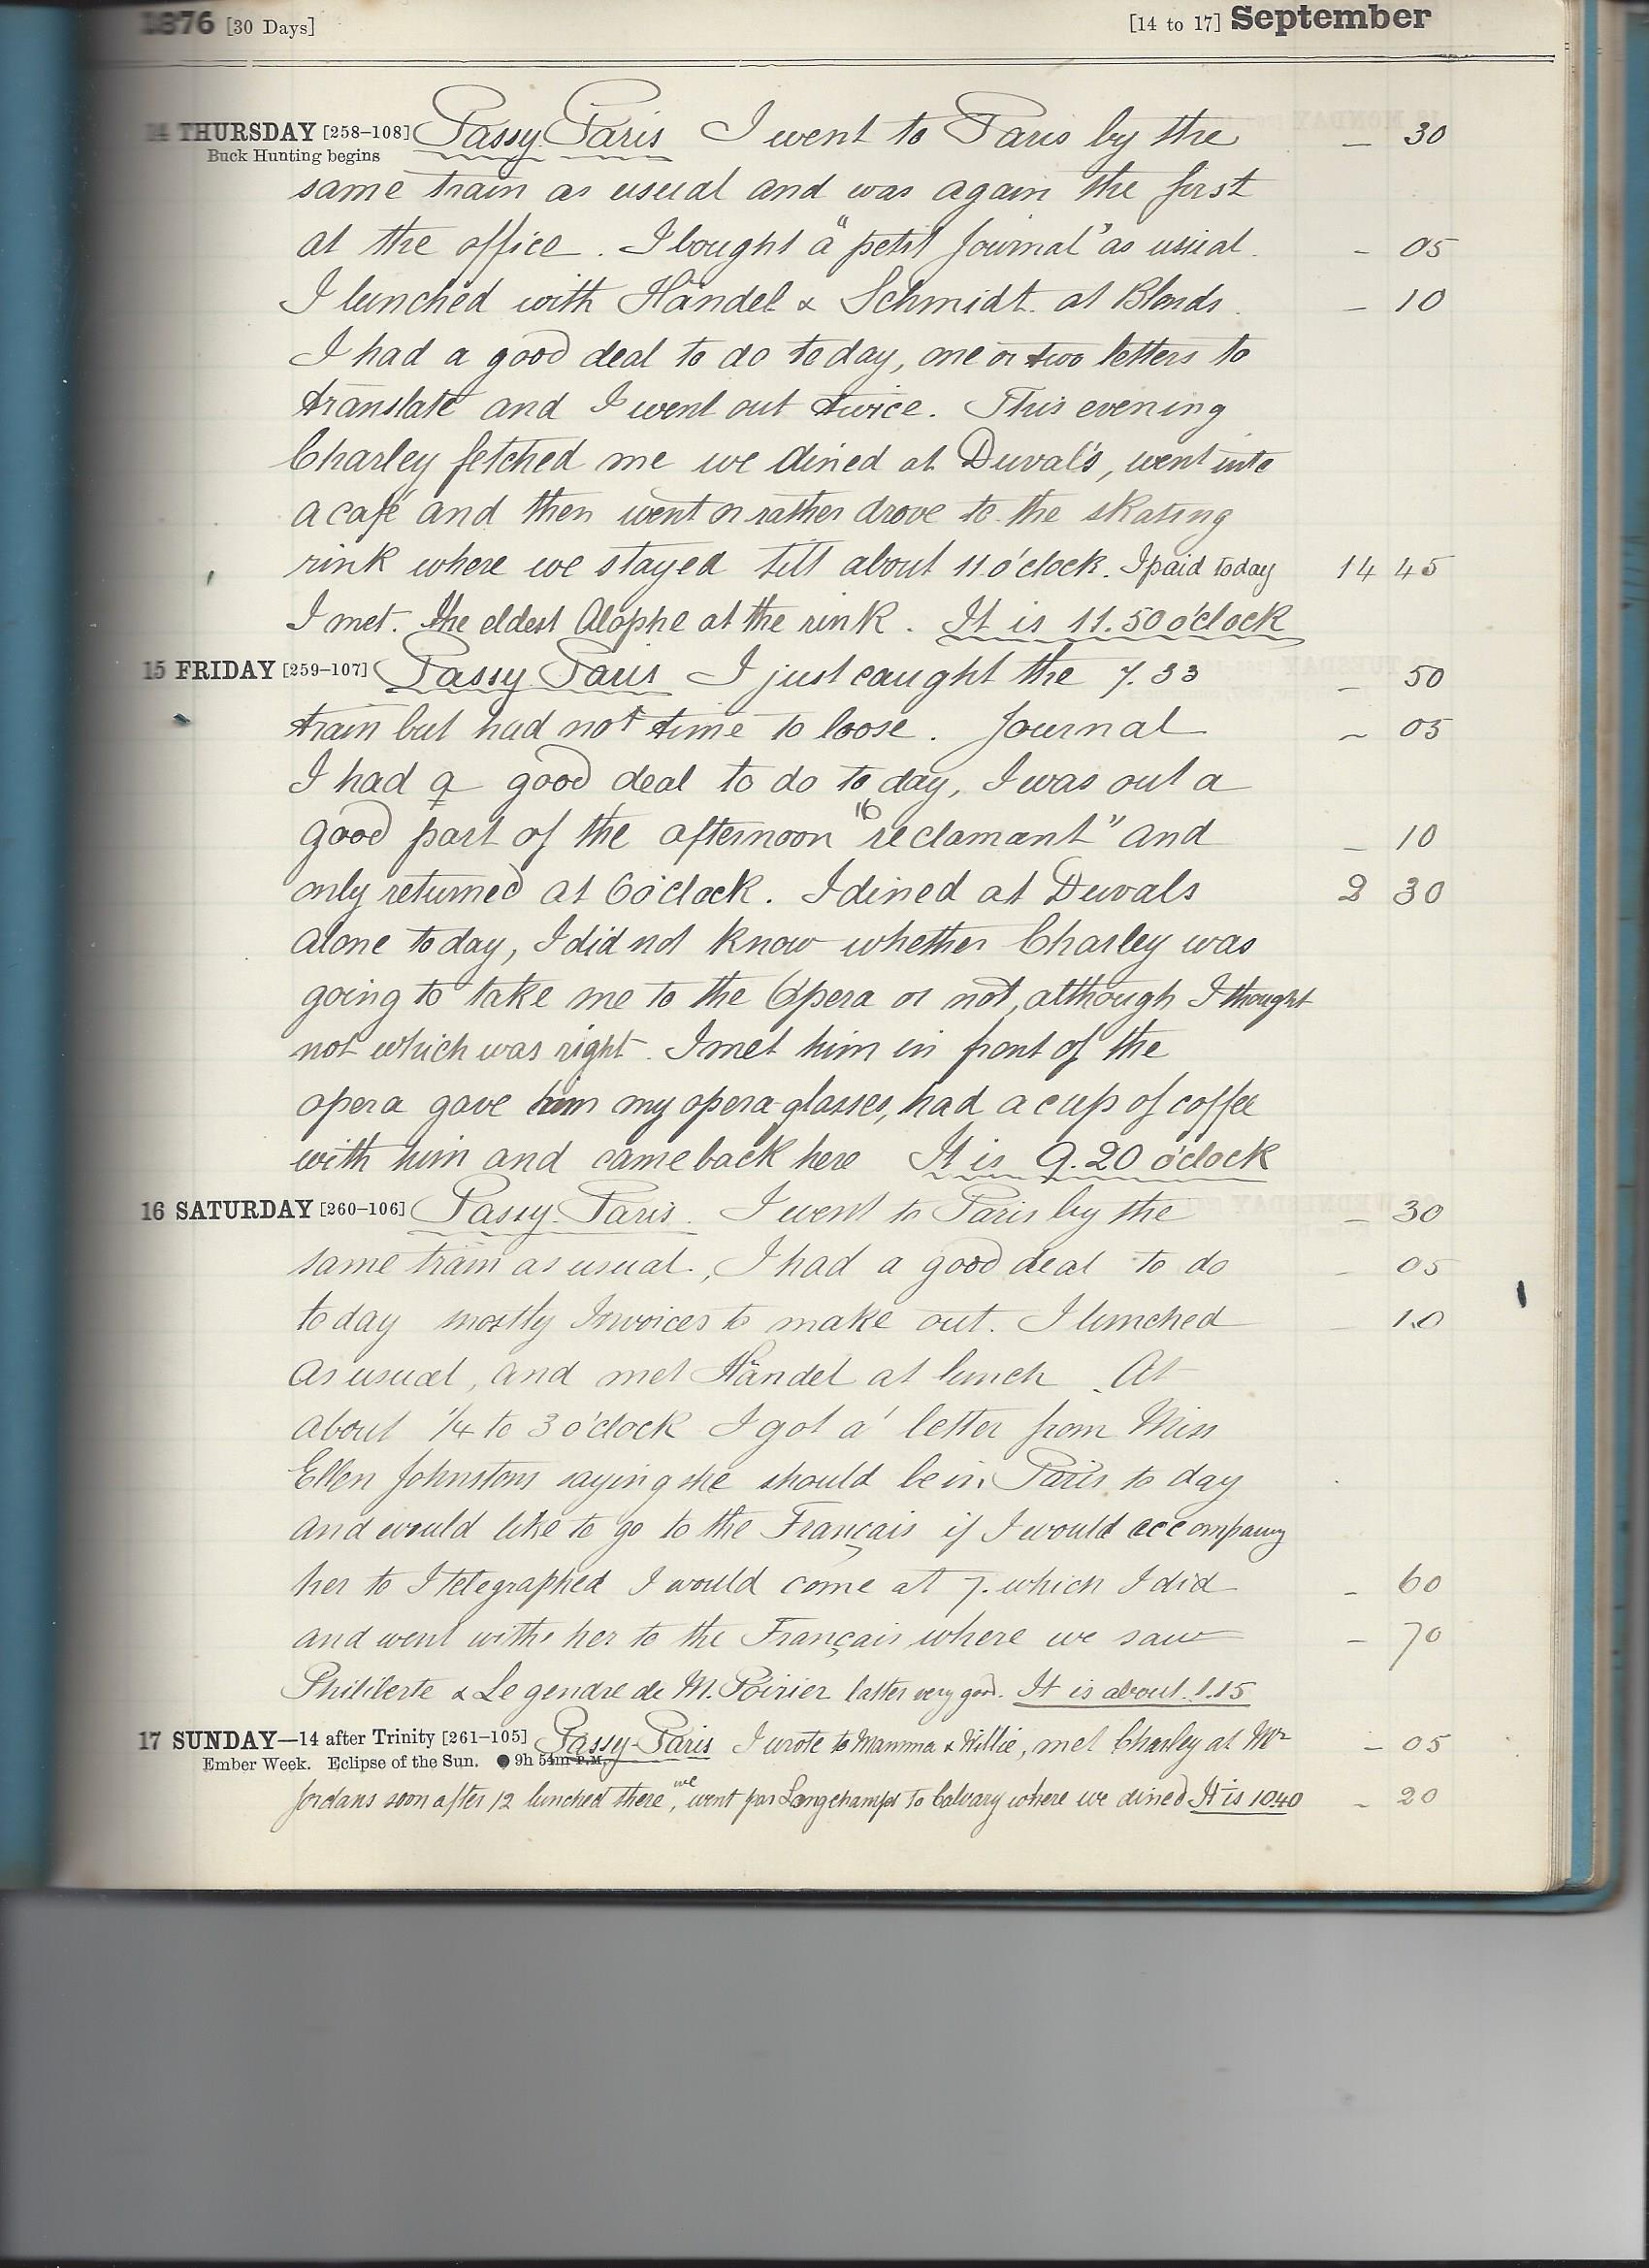 1876 [30 Days] [14 to 17] September
14 THURSDAY [258–108] Passy Paris I went to Paris by the – 30
Buck Hunting begins
same train as usual and was again the first
at the office. I bought a "petit Journal" as usual. – 05
I lunched with Händel & Schmidt. at Blonds. – 10
I had a good deal to do to day, one or two letters to
translate and I went out twice. This evening
Charley fetched me we dined at Duval's, went into
a café and then went or rather drove to the skating
rink where we stayed till about 11 o'clock. I paid today 14 45
I met. the eldest Alophe at the rink. It is 11.50 o'clock
15 FRIDAY [259–107] Passy Paris I just caught the 7.33 – 50
train but had not time to loose. Journal – 05
I had a good deal to do to day, I was out a
good part of the afternoon "reclamant" and – 10
16
only returned at 6 o'clock. I dined at Duvals 2 30
alone to day, I did not know whether Charley was
going to take me to the Opera or not, although I thought
not which was right. I met him in front of the
opera gave him my opera-glasses, had a cup of coffee
with him and came back here It is 9.20 o'clock
16 SATURDAY [260–106] Passy Paris. I went to Paris by the – 30
same train as usual., I had a good deal to do – 05
to day mostly Invoices to make out. I lunched – 10
as usual, and met Händel at lunch. At
about ¼ to 3 o'clock I got a letter from Miss
Ellen Johnstons saying she should be in Paris to day
and would like to go to the Français if I would accompany
her to I telegraphed I would come at 7. which I did – 60
and went with her to the Français where we saw – 70
Philiberte & Le gendre de M. Poirier latter very good. It is about 1.15
17 SUNDAY—14 after Trinity [261–105] Passy-Paris I wrote to Mamma & Willie, met Charley at Mr – 05
Ember Week. Eclipse of the Sun. ● 9h 54m P.M.
Jordans soon after 12 lunched there, we went par Longchamps to Calvary where we dined It is 10.40 – 20